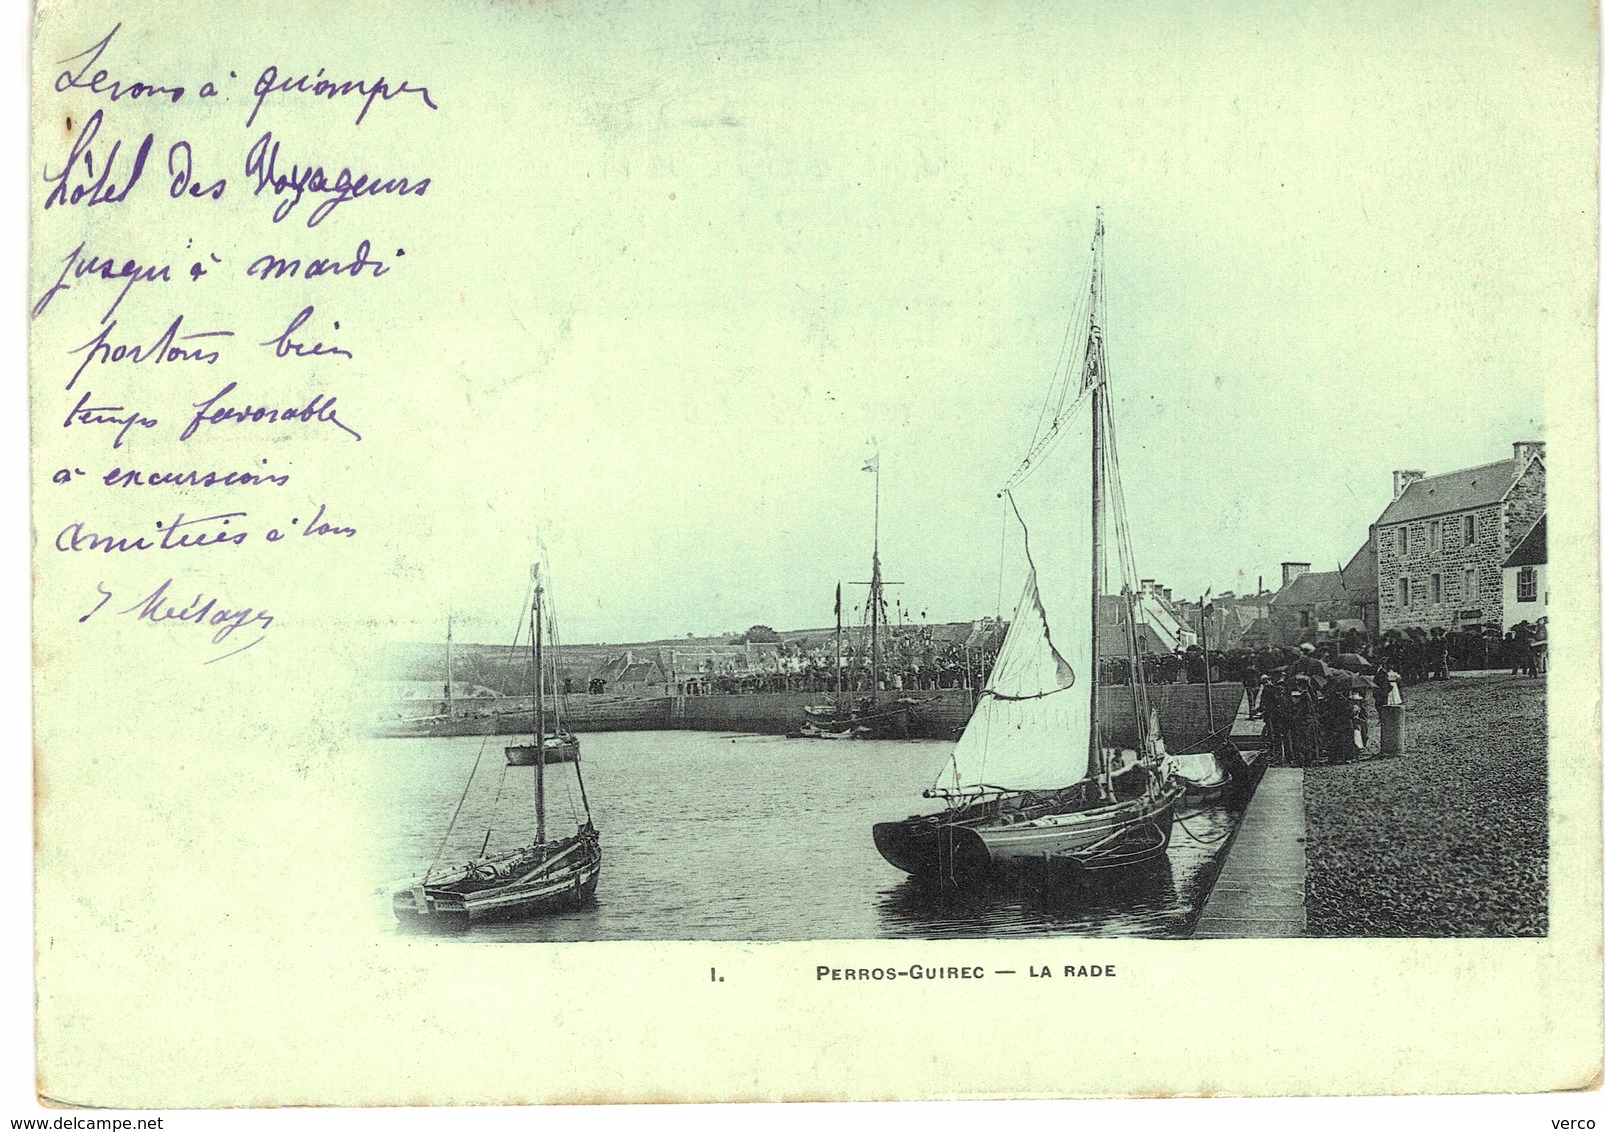 Serons à Quimper
hôtel des Voyageurs
jusqu'à mardi
portons bien
temps favorable
à excursions
Amitiés à tous
J Métayer
1. PERROS-GUIREC — LA RADE
www.delcampe.net
verco